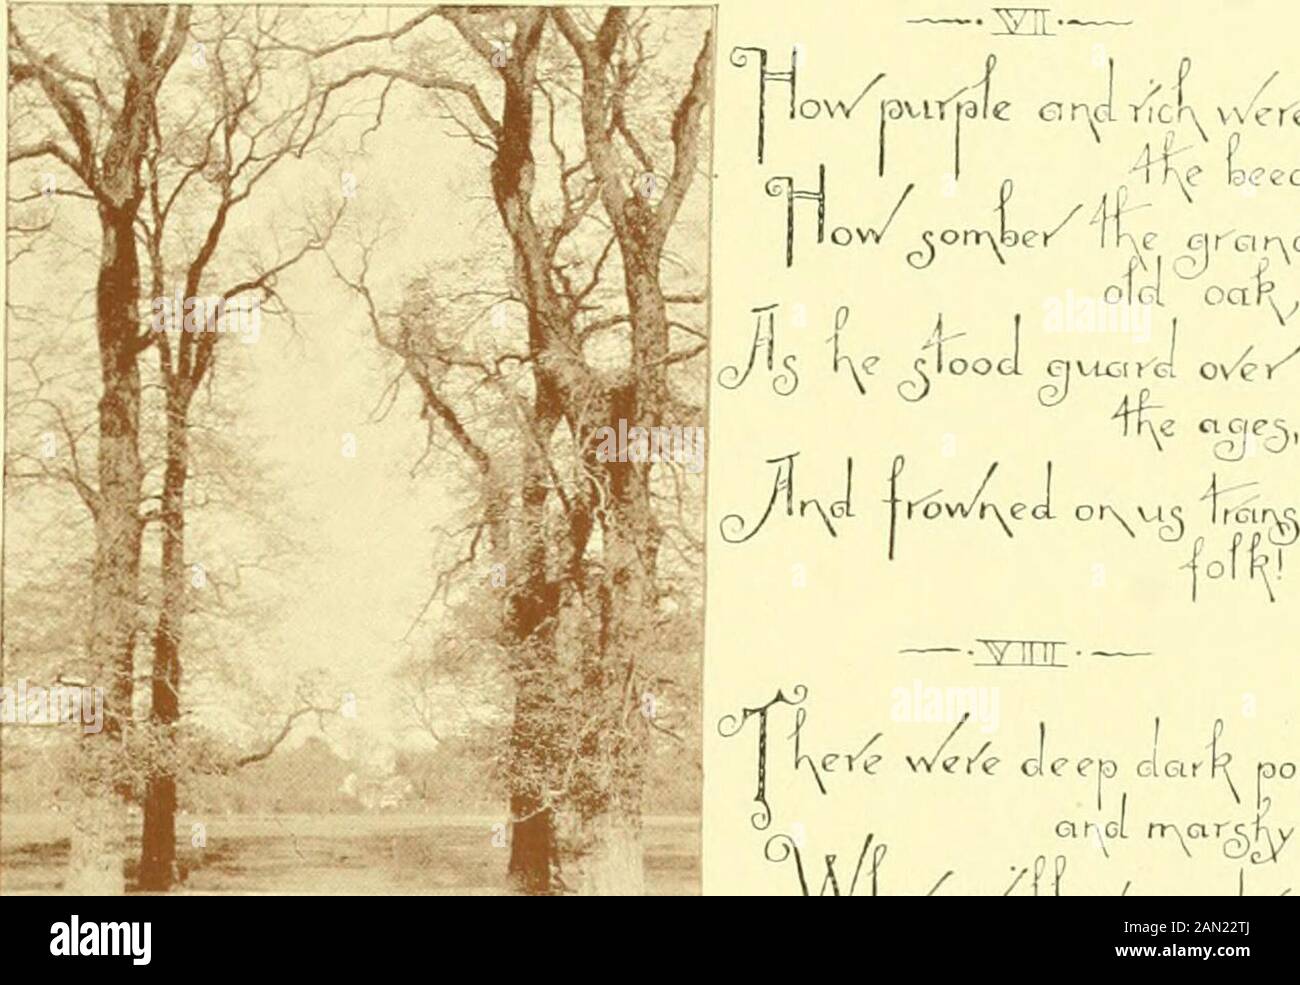 VII
How purple and rich were
the beec
How somber the grand
old oak,
As he stood guard over
the ages,
And frowned on us trans
folk!
VIII
There were deep dark po
and marshy
alamy
Image ID: 2AN22TJ
www.alamy.com